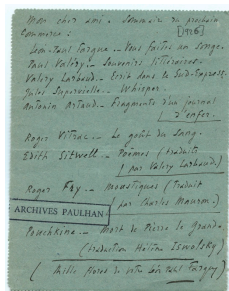 Mon cher ami. Sommaire du prochain
Commerce : [1926]
Léon-Paul Fargue _ Vous faites un songe.
Paul Valéry _ Souvenirs littéraires.
Valery Larbaud _ Écrit dans le Sud-Express.
Jules Supervielle _ Whisper.
Antonin Artaud _ Fragments d'un journal
d'enfer.
Roger Vitrac _ Le goût du sang.
Edith Sitwell _ Poèmes (traduits
par Valery Larbaud)
Roger Fry _ Moustiques (traduit
par Charles Mauron.)
ARCHIVES PAULHAN
Pouchkine _ Mort de Pierre le Grand _
(traduction Hélène Iswolsky)
(Mille de votre Léon Paul Fargue)